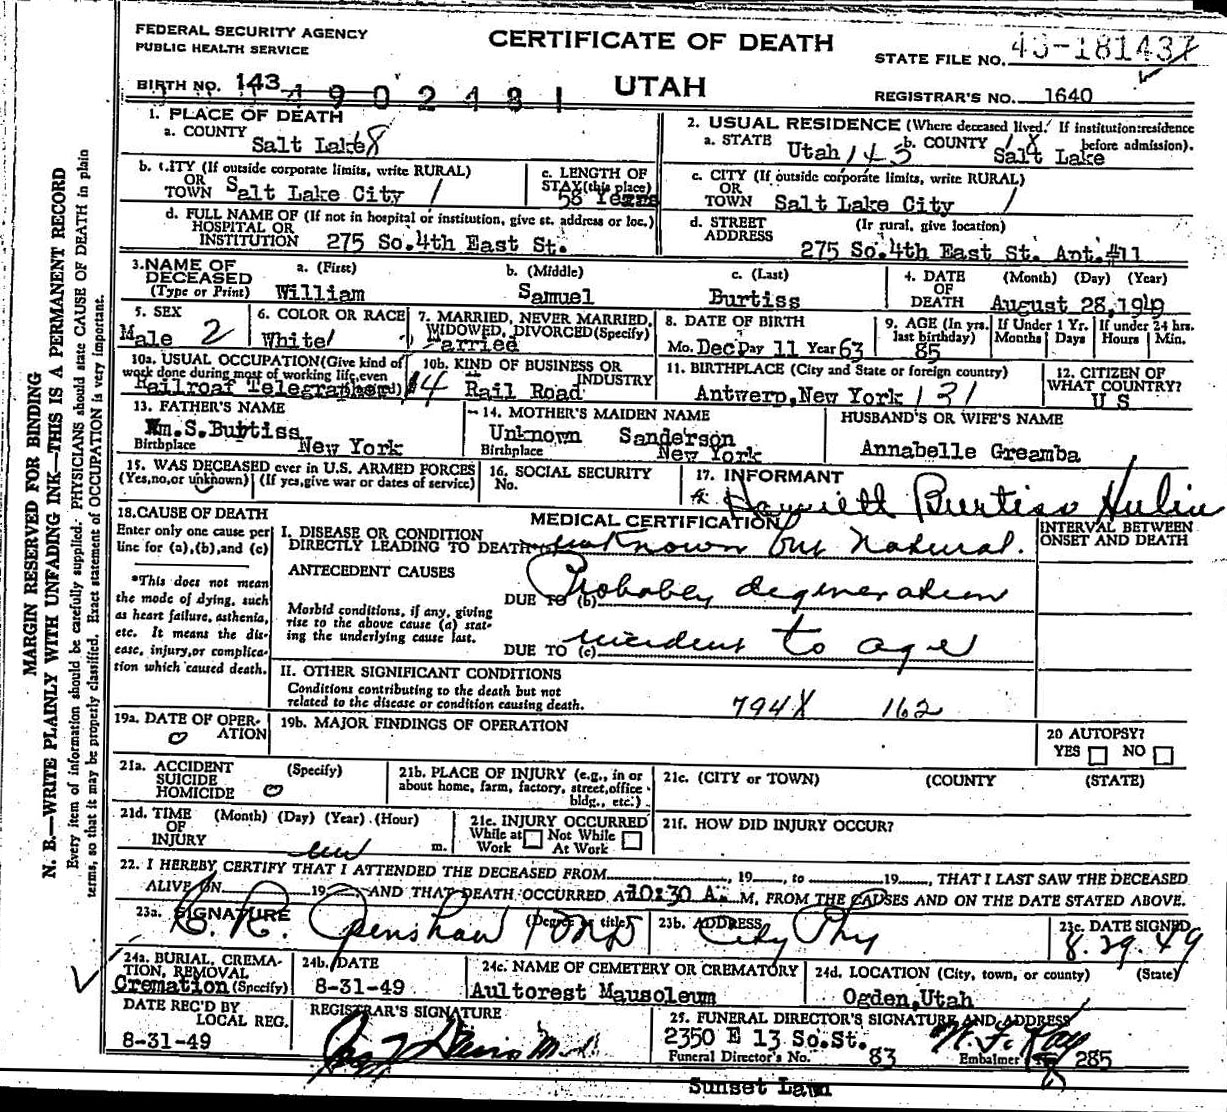 FEDERAL SECURITY AGENCY
PUBLIC HEALTH SERVICE
CERTIFICATE OF DEATH
STATE FILE NO. 43-181437
BIRTH NO. 143 4902481
UTAH
REGISTRAR'S NO. 1640
1. PLACE OF DEATH
a. COUNTY
Salt Lake 8
2. USUAL RESIDENCE (Where deceased lived. If institution: residence before admission).
a. STATE Utah 143 b. COUNTY 18 Salt Lake
b. CITY (If outside corporate limits, write RURAL)
OR
TOWN Salt Lake City 1
c. LENGTH OF
STAY (this place)
58 Years
c. CITY (If outside corporate limits, write RURAL)
OR
TOWN Salt Lake City 1
d. FULL NAME OF (If not in hospital or institution, give st. address or loc.)
HOSPITAL OR
INSTITUTION 275 So. 4th East St.
d. STREET (If rural, give location)
ADDRESS
275 So. 4th East St. Apt. #11
3. NAME OF
DECEASED
(Type or Print)
a. (First) b. (Middle) c. (Last)
William Samuel Burtiss
4. DATE (Month) (Day) (Year)
OF
DEATH August 28, 1949
5. SEX
Male 2
6. COLOR OR RACE
White 1
7. MARRIED, NEVER MARRIED,
WIDOWED, DIVORCED (Specify)
arried
8. DATE OF BIRTH
Mo. Dec Day 11 Year 63
9. AGE (In yrs.
last birthday)
85
If Under 1 Yr.
Months Days
If under 24 hrs.
Hours Min.
10a. USUAL OCCUPATION (Give kind of
work done during most of working life, even
Railroaf Telegrapher
10b. KIND OF BUSINESS OR
INDUSTRY
Rail Road
11. BIRTHPLACE (City and State or foreign country)
Antwerp, New York 131
12. CITIZEN OF
WHAT COUNTRY?
U S
13. FATHER'S NAME
Wm. S. Burtiss
Birthplace New York
14. MOTHER'S MAIDEN NAME
Unknown Sanderson
Birthplace New York
HUSBAND'S OR WIFE'S NAME
Annabelle Greamba
15. WAS DECEASED ever in U.S. ARMED FORCES
(Yes, no, or unknown) (If yes, give war or dates of service)
16. SOCIAL SECURITY
No.
17. INFORMANT
Harriett Burtiss Hulin
18. CAUSE OF DEATH
Enter only one cause per
line for (a), (b), and (c)
*This does not mean
the mode of dying, such
as heart failure, asthenia,
etc. It means the dis-
ease, injury, or complica-
tion which caused death.
MEDICAL CERTIFICATION
INTERVAL BETWEEN
ONSET AND DEATH
I. DISEASE OR CONDITION
DIRECTLY LEADING TO DEATH unknown but natural.
ANTECEDENT CAUSES
DUE TO (b) Probably degeneration
Morbid conditions, if any, giving
rise to the above cause (a) stat-
ing the underlying cause last.
DUE TO (c) incident to age
II. OTHER SIGNIFICANT CONDITIONS
Conditions contributing to the death but not
related to the disease or condition causing death.
794X 162
19a. DATE OF OPER-
ATION
0
19b. MAJOR FINDINGS OF OPERATION
20 AUTOPSY?
YES NO
21a. ACCIDENT (Specify)
SUICIDE
HOMICIDE 0
21b. PLACE OF INJURY (e.g., in or
about home, farm, factory, street, office
bldg., etc.)
21c. (CITY or TOWN) (COUNTY) (STATE)
21d. TIME (Month) (Day) (Year) (Hour)
OF
INJURY m.
21e. INJURY OCCURRED
While at Work Not While At Work
21f. HOW DID INJURY OCCUR?
22. I HEREBY CERTIFY THAT I ATTENDED THE DECEASED FROM, 19, to 19, THAT I LAST SAW THE DECEASED
ALIVE ON 19, AND THAT DEATH OCCURRED AT 10:30 A. M, FROM THE CAUSES AND ON THE DATE STATED ABOVE.
23a. SIGNATURE (Degree or title)
Openshaw MD
23b. ADDRESS
City Phy
23c. DATE SIGNED
8.29.49
24a. BURIAL, CREMA-
TION, REMOVAL
Cremation (Specify)
24b. DATE
8-31-49
24c. NAME OF CEMETERY OR CREMATORY
Aultorest Mausoleum
24d. LOCATION (City, town, or county) (State)
Ogden, Utah
DATE REC'D BY
LOCAL REG.
8-31-49
REGISTRAR'S SIGNATURE
25. FUNERAL DIRECTOR'S SIGNATURE AND ADDRESS
2350 E 13 So. St.
Funeral Director's No. 83 Embalmer 285
Sunset Lawn
MARGIN RESERVED FOR BINDING
N. B.—WRITE PLAINLY WITH UNFADING INK—THIS IS A PERMANENT RECORD
Every item of information should be carefully supplied. PHYSICIANS should state CAUSE OF DEATH in plain
terms, so that it may be properly classified. Exact statement of OCCUPATION is very important.